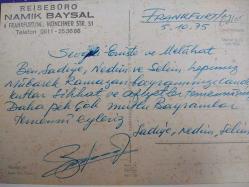 REISEBÜRO
NAMIK BAYSAL
6 FRANKFURT/M., MÜNCHNER STR. 51
Telefon 0611 - 253688
FRANKFURT/M
5.10.75
Sevgili Ümit ve Melâhat
Ben, Sadiye, Nedim ve Selim, hepimiz
Mübarek Ramazan bayramınızı candan
kutlar Sıhhat ve afiyetler temennisiyle
Daha pek çok mutlu Bayramlar
temenni eyleriz
Sadiye, Nedim, Selim